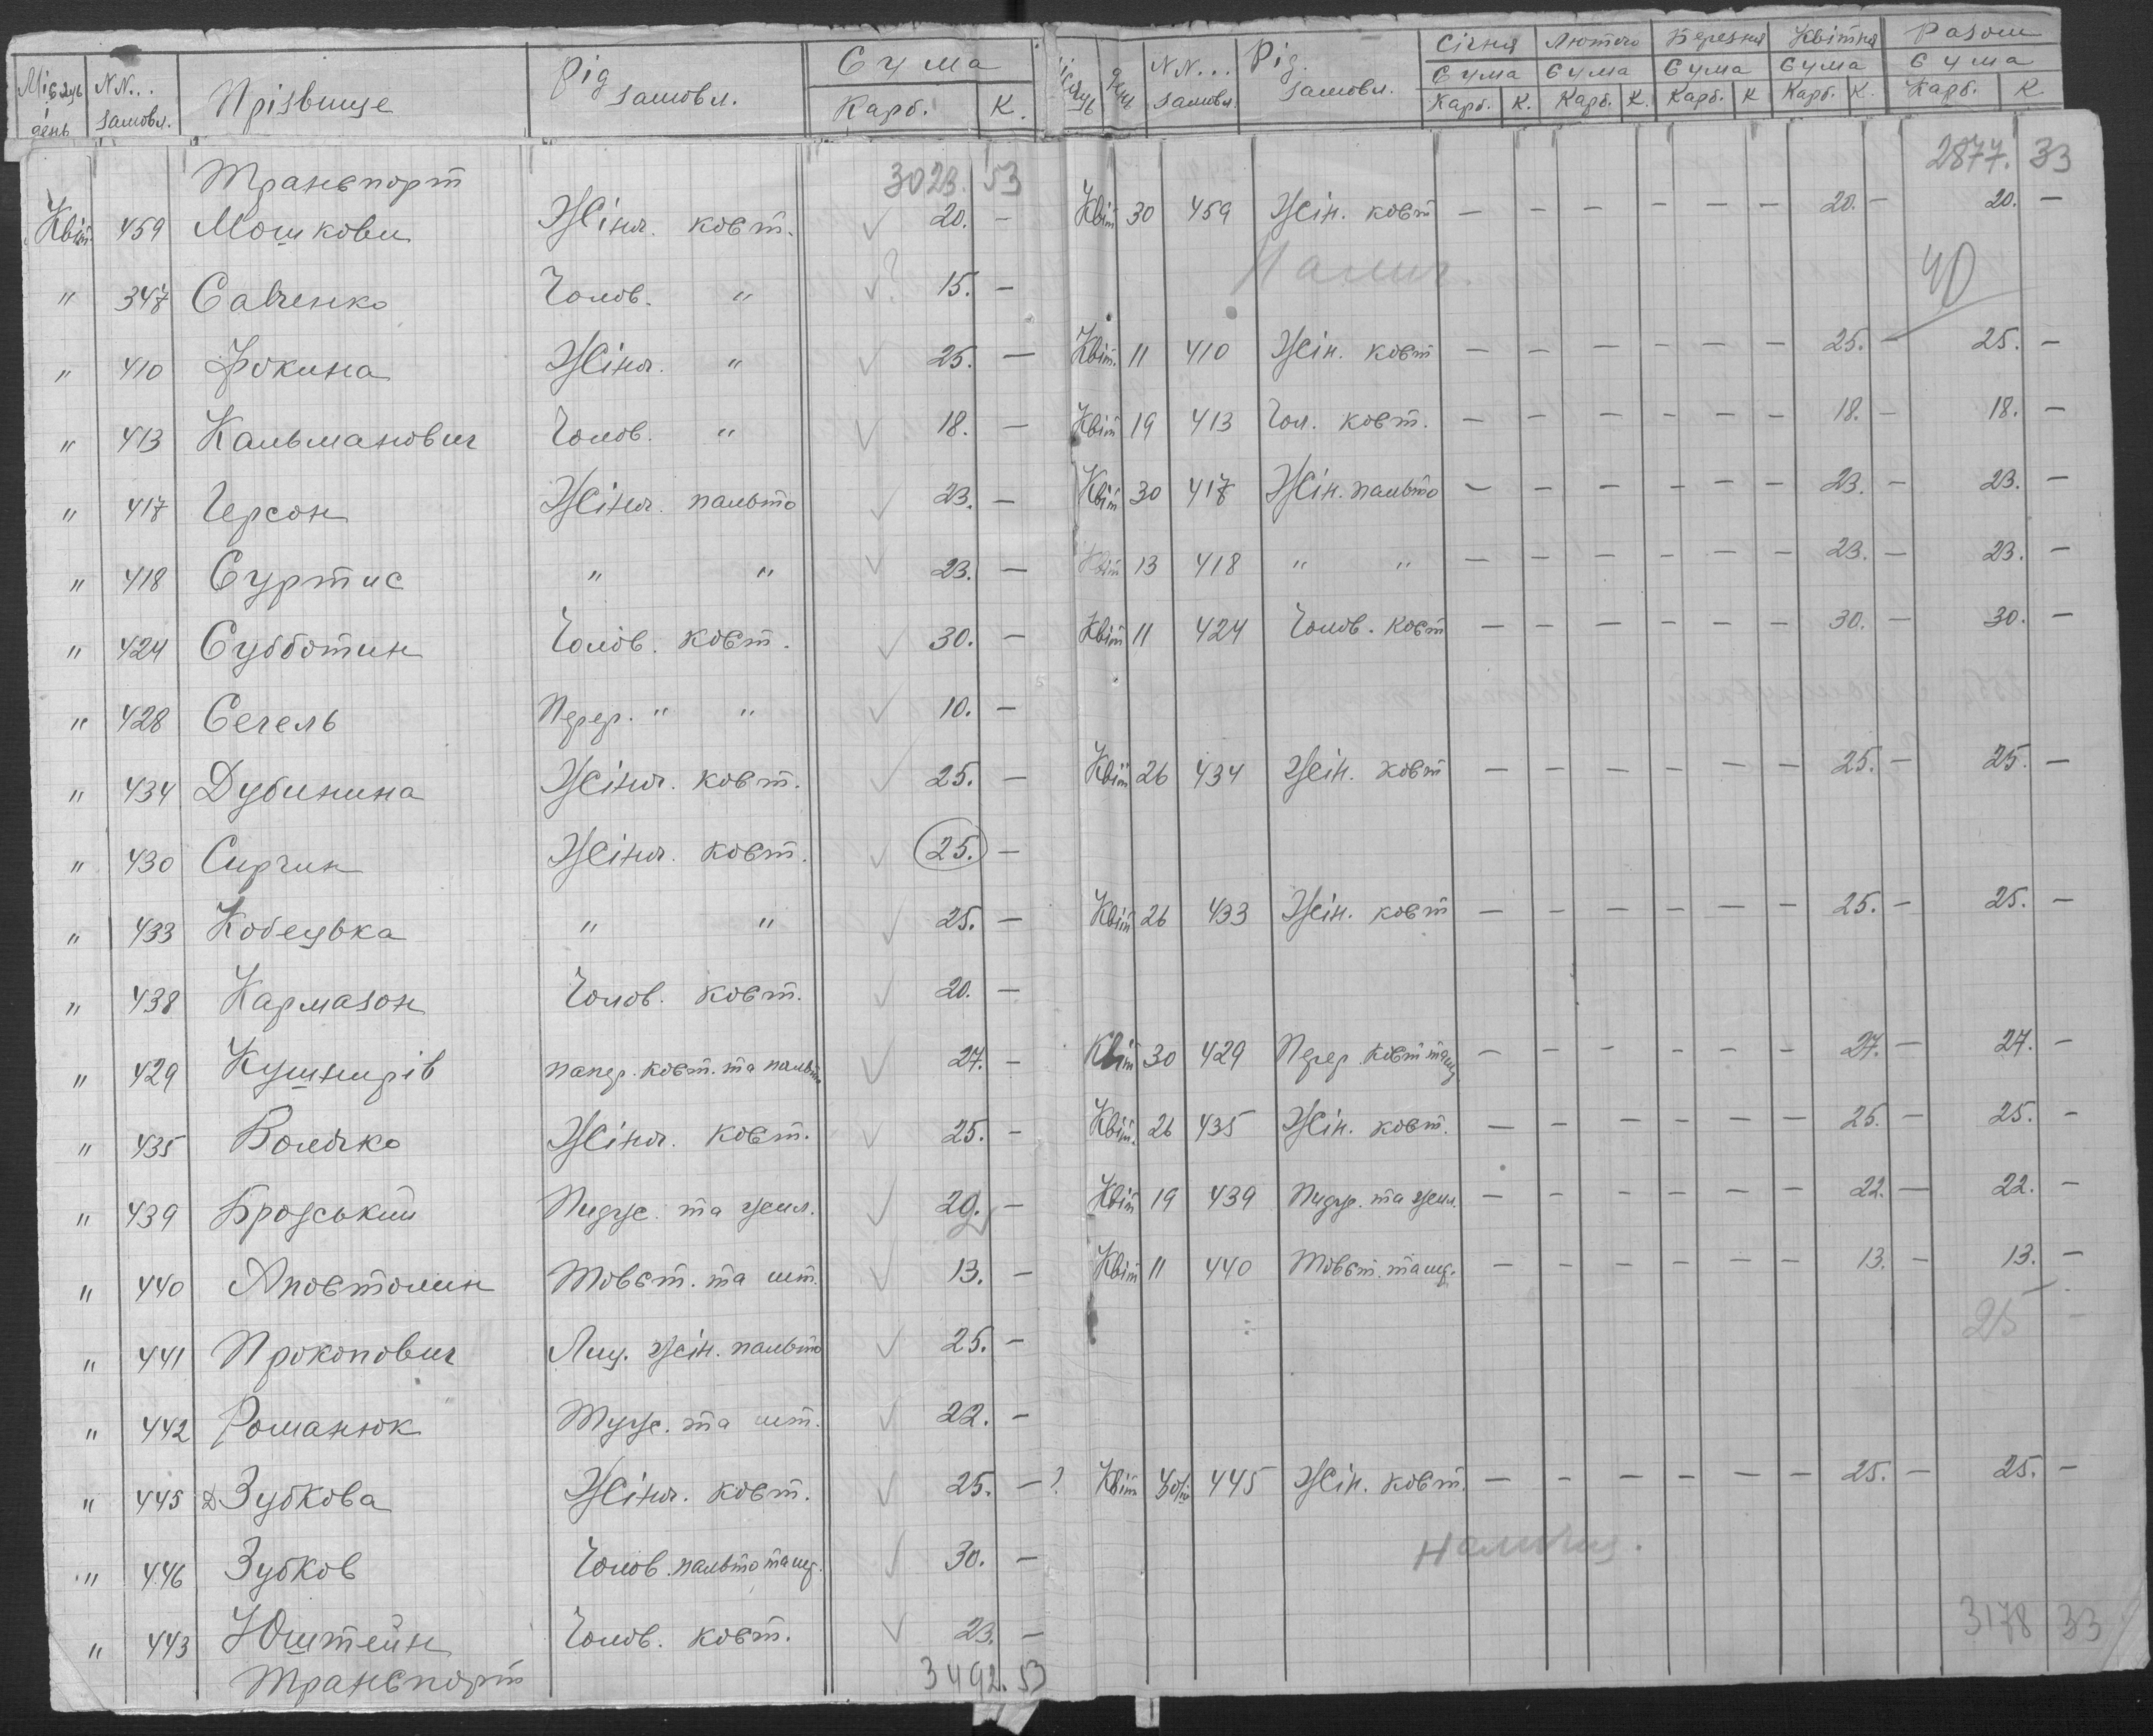 Місяць і день | NN... замовл. | Прізвище | Рід замовл. | Сума Карб. | К. | Місяць | День | NN... замовл. | Рід. замовл. | Січня Сума Карб. К. | Лютого Сума Карб. К. | Березня Сума Карб. К | Квітня Сума Карб. К. | Разом Сума Карб. К
Транспорт 3023. 53 2877. 33
Квіт. 459 Мошкови Жіноч. кост. 20. — Квіт 30 459 Жін. кост — — — — — — 20. — 20. —
" 347 Савченко Чолов. " ? 15. — 40
" 410 Фокина Жіноч. " 25. — Квіт. 11 410 Жін. кост — — — — — — 25. — 25. —
" 413 Кальманович Чолов. " 18. — Квіт 19 413 Чол. кост. — — — — — — 18. — 18. —
" 417 Герсон Жіноч. пальто 23. — Квіт 30 417 Жін. пальто — — — — — — 23. — 23. —
" 418 Суртис " " 23. — Квіт 13 418 " " — — — — — — 23. — 23. —
" 424 Субботин Чолов. кост. 30. — Квіт 11 424 Чолов. кост — — — — — — 30. — 30. —
" 428 Сегель Перер. " " 10. —
" 434 Дубинина Жіноч. кост. 25. — Квіт 26 434 Жін. кост — — — — — — 25. — 25. —
" 430 Сиргин Жіноч. кост. 25. —
" 433 Кобецька " " 25. — Квіт 26 433 Жін. кост — — — — — — 25. — 25. —
" 438 Кармазон Чолов. кост. 20. —
" 429 Кушнирів папер. кост. та пальто 27. — Квіт 30 429 Перер. кост та — — — — — — 27. — 27. —
" 435 Волочко Жіноч. кост. 25. — Квіт. 26 435 Жін. кост. — — — — — — 25. — 25. —
" 439 Бродський Пидж. та жил. 22. — Квіт 19 439 Пидж. та жил. — — — — — — 22. — 22. —
" 440 Апостолин Товст. та шт. 13. — Квіт 11 440 Товст. та шт. — — — — — — 13. — 13. —
" 441 Прокопович Лиц. жін. пальто 25. — 25 —
" 442 Романюк Туж. та шт. 22. —
" 445 Зубкова Жіноч. кост. 25. — ? Квіт 30 445 Жін. кост. — — — — — — 25. — 25. —
" 446 Зубков Чолов. пальто та шт. 30. —
" 443 Юштейн Чолов. кост. 23. — 3178 33
Транспорт 3492. 53